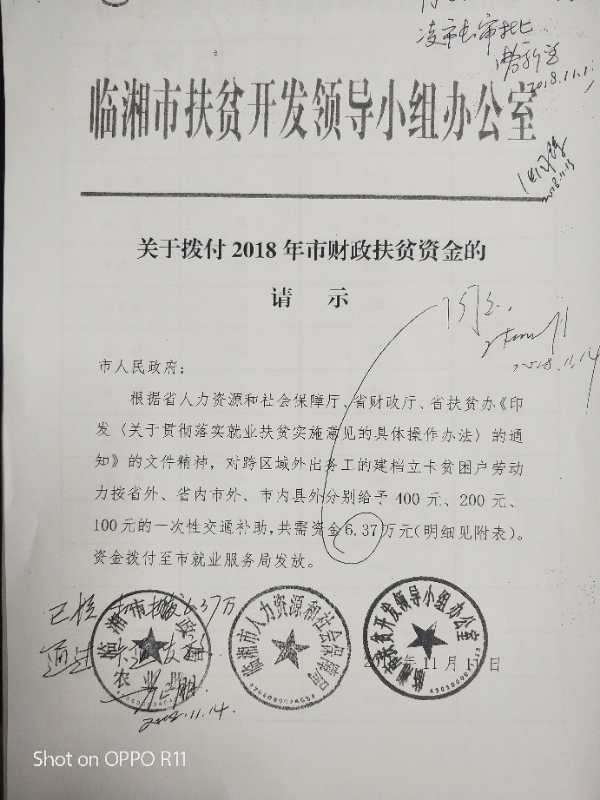 凌市长审批
2018.11.1
临湘市扶贫开发领导小组办公室
2018.11.13
关于拨付 2018 年市财政扶贫资金的
请 示
同意.
2018.11.14
市人民政府：
根据省人力资源和社会保障厅、省财政厅、省扶贫办《印
发〈关于贯彻落实就业扶贫实施意见的具体操作办法〉的通
知》的文件精神，对跨区域外出务工的建档立卡贫困户劳动
力按省外、省内市外、市内县外分别给予 400 元、200 元、
100 元的一次性交通补助，共需资金 6.37 万元（明细见附表）。
资金拨付至市就业服务局发放。
6.37万
通过
临湘市财政局
农业股
临湘市人力资源和社会保障局
临湘市扶贫开发领导小组办公室
11 月 1 日
11.14.
Shot on OPPO R11